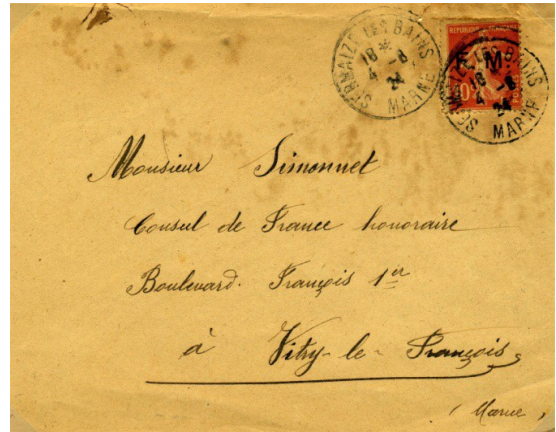 SERMAIZE LES BAINS
18 *
4 -8
24
MARNE
REPUBLIQUE FRANÇAISE
F. M.
SERMAIZE LES BAINS
18
4 -8
24
MARNE
Monsieur Simonnet
Consul de France honoraire
Boulevard. François 1er
à Vitry-le-François,
(Marne)